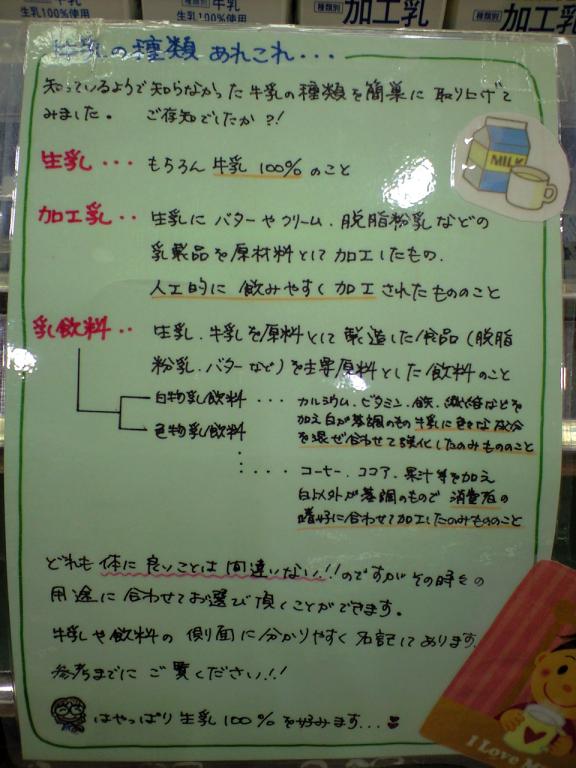 牛乳
生乳100%使用
牛乳
生乳100%使用
種類別 加工乳
種類別 加工乳
牛乳の種類あれこれ・・・
知っているようで知らなかった牛乳の種類を簡単に取り上げて
みました。 ご存知でしたか?!
生乳・・・もちろん牛乳100%のこと
MILK
加工乳・・生乳にバターやクリーム、脱脂粉乳などの
乳製品を原材料として加工したもの。
人工的に飲みやすく加工されたもののこと
乳飲料・・生乳、牛乳を原料として製造した食品(脱脂
粉乳、バターなど)を主要原料とした飲料のこと
白物乳飲料・・・カルシウム、ビタミン、鉄、繊維などを
加え白が基調のもの牛乳に色々な成分
色物乳飲料
を混ぜ合わせて強化したのみもののこと
・・・・コーヒー、ココア、果汁等を加え
白以外が基調のもので消費者の
嗜好に合わせて加工したのみもののこと
どれも体に良いことは間違いない!!のですがその時々の
用途に合わせてお選び頂くことができます。
牛乳や飲料の側面に分かりやすく名記してあります。
参考までにご覧ください!!
はやっぱり生乳100%を好みます...
I Love